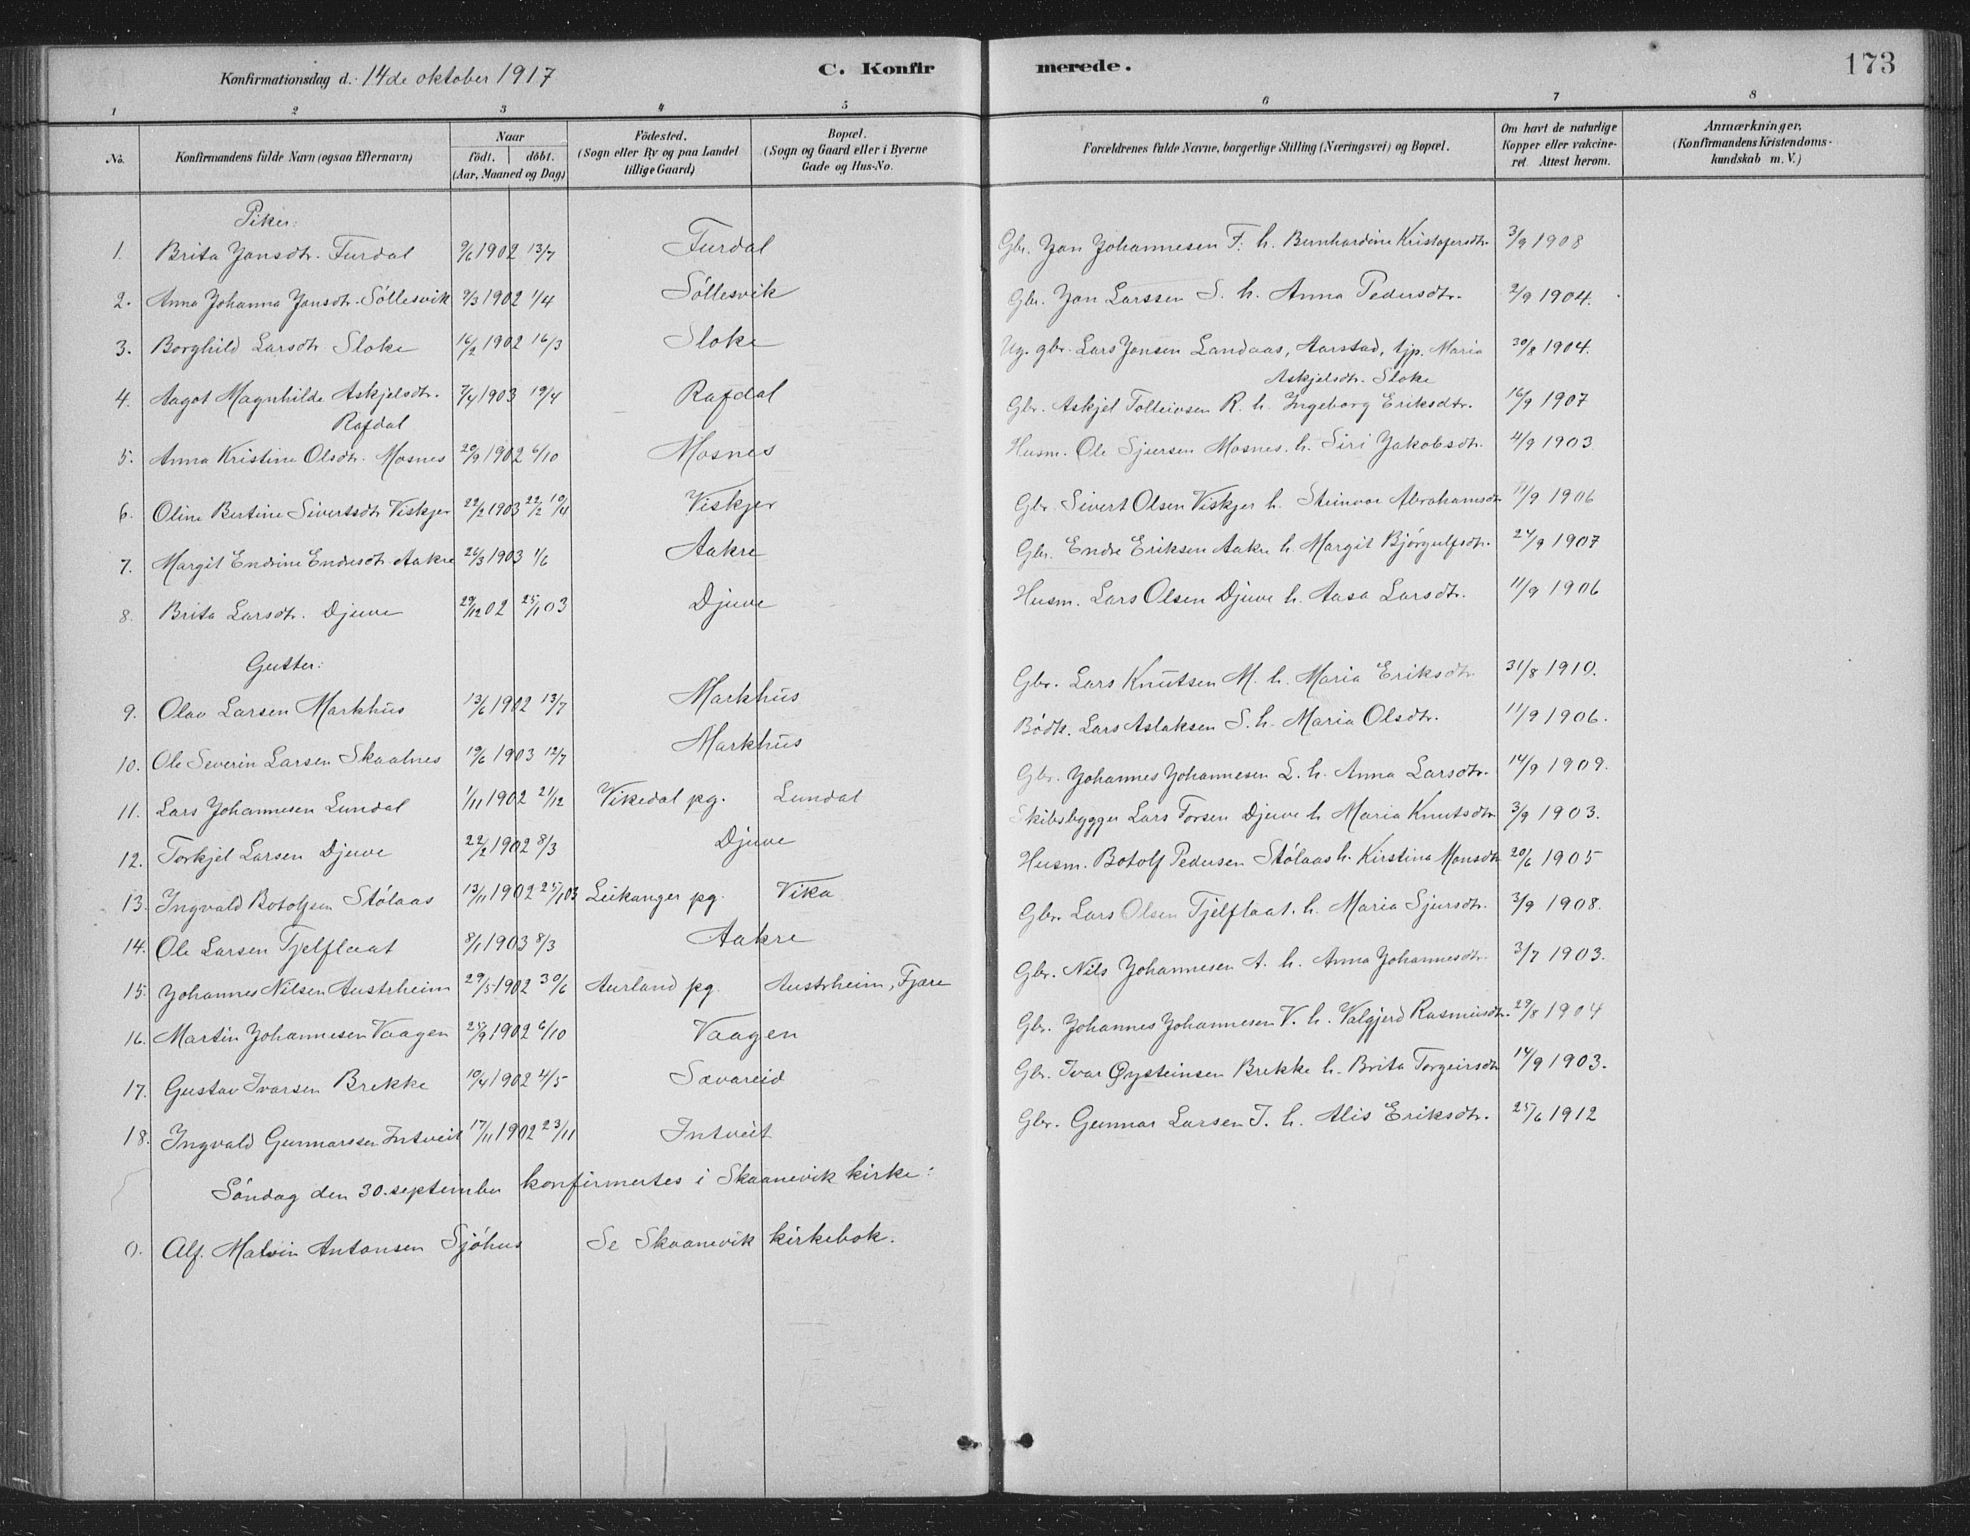 Konfirmationsdag d. 14de oktober 1917
C. Konfirmerede.
173
1 2 3 4 5 6 7 8
No.
Konfirmandens fulde Navn (ogsaa Efternavn)
Naar
födt. döbt.
(Aar, Maaned og Dag)
Födested.
(Sogn eller By og paa Landet
tillige Gaard)
Bopæl.
(Sogn og Gaard eller i Byerne
Gade og Hus-No.
Forældrenes fulde Navne, borgerlige Stilling (Næringsvei) og Bopæl.
Om havt de naturlige
Kopper eller vakcine-
ret. Attest herom.
Anmærkninger.
(Konfirmandens Kristendoms-
kundskab m. V.)
Piker:
1. Brita Jansdtr. Furdal 9/6 1902 13/7 Furdal Gbr. Jan Johannesen F. h. Bernhardine Kristofersdtr. 3/9 1908
2. Anna Johanna Jansdtr. Söllesvik 9/3 1902 1/4 Söllesvik Gbr. Jan Larssen S. h. Anna Pedersdtr. 2/9 1904.
3. Borghild Larsdtr Sloke 16/2 1902 16/3 Sloke Ug. gbr. Lars Jansen Landaas, Aarstad, tjp. Maria 30/8 1904.
Askjelsdtr. Sloke
4. Aagot Magnhilde Askjelsdtr. 7/4 1903 19/4 Rafdal Gbr. Askjel Tolleivsen R. h. Ingeborg Eriksdtr. 16/9 1907
Rafdal
5. Anna Kristine Olsdtr. Mosnes 20/9 1902 6/10 Mosnes Husm. Ole Sjursen Mosnes. h. Siri Jakobsdtr. 4/9 1903
6. Oline Bertine Sivertsdtr Viskjer 22/2 1903 22/2 19/4 Viskjer Gbr. Sivert Olsen Viskjer h. Steinvor Abrahamsdtr 11/9 1906
7. Margit Endine Endresdtr. Aakre 26/3 1903 1/6 Aakre Gbr. Endre Eriksen Aakre h. Margit Bjørgulfsdtr. 24/9 1907
8. Brita Larsdtr. Djuve 29/12 02 25/1 03 Djuve Husm. Lars Olsen Djuve h. Aasa Larsdtr. 11/9 1906
Gutter:
9. Olav Larsen Markhus 13/6 1902 13/7 Markhus Gbr. Lars Knutsen M. h. Maria Eriksdtr 31/8 1910.
10. Ole Severin Larsen Skaalnes 19/6 1903 12/7 Markhus Bödk. Lars Aslaksen S. h. Maria Olsdtr. 11/9 1906.
11. Lars Johannesen Lundal 1/11 1902 21/12 Vikedal pg. Lundal Gbr. Johannes Johannesen L. h. Anna Larsdtr. 14/9 1909.
12. Torkjel Larsen Djuve 22/2 1902 8/3 Djuve Skibsbygger Lars Torsen Djuve h Maria Knutsdtr 3/9 1903.
13. Ingvald Botolfsen Stölaas 13/11 1902 25/1 03 Leikanger pg. Vika Husm. Botolf Pedersen Stölaas h. Kirstina Monsdtr 20/6 1905
14. Ole Larsen Tjelflaat 8/1 1903 8/3 Aakre Gbr. Lars Olsen Tjelflaat. h. Maria Sjursdtr. 3/9 1908.
15. Johannes Nilsen Austrheim 29/5 1902 30/6 Aurland pg. Austrheim, Fjære Gbr. Nils Johannesen A. h. Anna Johannesdtr. 3/7 1903.
16. Martin Johannesen Vaagen 25/9 1902 6/10 Vaagen Gbr. Johannes Johannesen V. h. Valgjerd Rasmusdtr. 29/8 1904
17. Gustav Ivarsen Brekke 10/4 1902 4/5 Sævareid Gbr. Ivar Øysteinsen Brekke h. Brita Torgeirsdtr 14/9 1903.
18. Ingvald Gunnarssen Intveit 17/11 1902 23/11 Intveit Gbr. Gunnar Larsen I. h. Alis Eriksdtr. 25/6 1912
Söndag den 30. september konfirmertes i Skaanevik kirke:
0. Alf. Malvin Antonsen Sjöhus Se Skaanevik kirkebok.